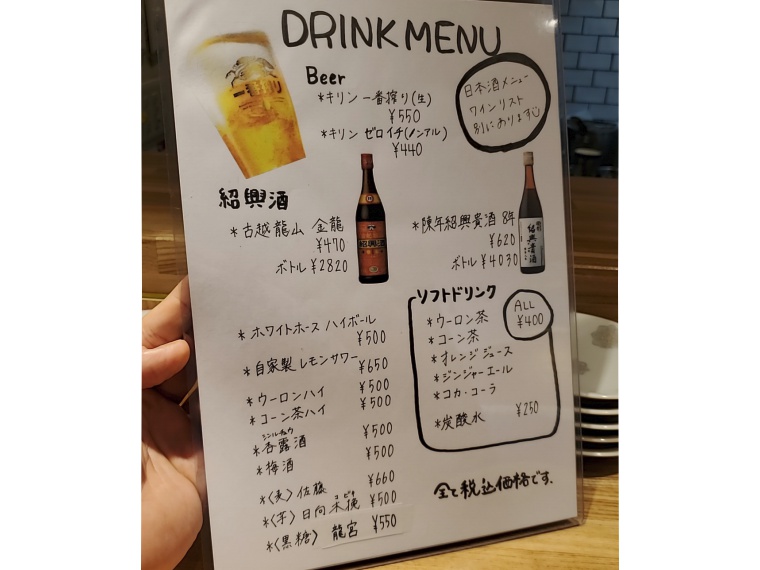 DRINK MENU
Beer
*キリン 一番搾り(生)
¥550
*キリン ゼロイチ(ノンアル)
¥440
日本酒メニュー
ワインリスト
別にあります
一番搾り
紹興酒
*古越龍山 金龍
¥470
ボトル ¥2820
紹興酒
*陳年紹興貴酒 8年
¥620
ボトル ¥4030
紹興貴酒
*ホワイトホース ハイボール
¥500
*自家製 レモンサワー ¥650
*ウーロンハイ ¥500
*コーン茶ハイ ¥500
シンルチュウ
*杏露酒 ¥500
*梅酒 ¥500
*〈麦〉佐藤 ¥660
*〈芋〉日向木挽 ¥500
*〈黒糖〉龍宮 ¥550
ソフトドリンク
ALL
¥400
*ウーロン茶
*コーン茶
*オレンジジュース
*ジンジャーエール
*コカ・コーラ
*炭酸水 ¥250
全て税込価格です.